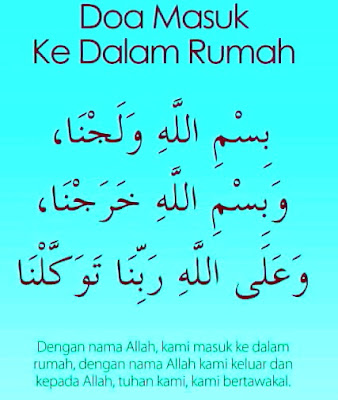 Doa Masuk
Ke Dalam Rumah
بِسْمِ اللَّهِ وَلَجْنَا،
وَبِسْمِ اللَّهِ خَرَجْنَا،
وَعَلَى اللَّهِ رَبِّنَا تَوَكَّلْنَا
Dengan nama Allah, kami masuk ke dalam
rumah, dengan nama Allah kami keluar dan
kepada Allah, tuhan kami, kami bertawakal.